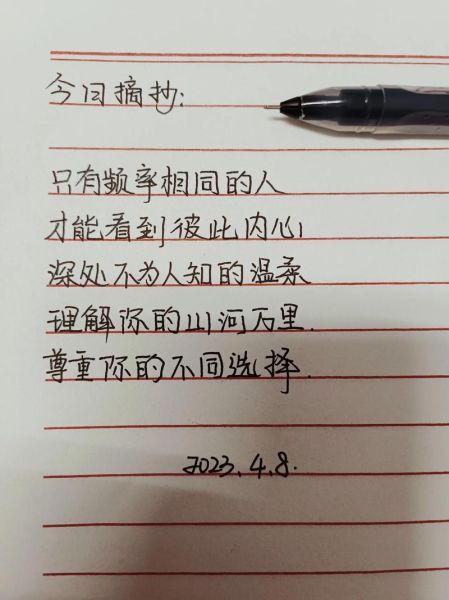 今日摘抄:
只有频率相同的人
才能看到彼此内心
深处不为人知的温柔
理解你的山河万里.
尊重你的不同选择.
2023.4.8.